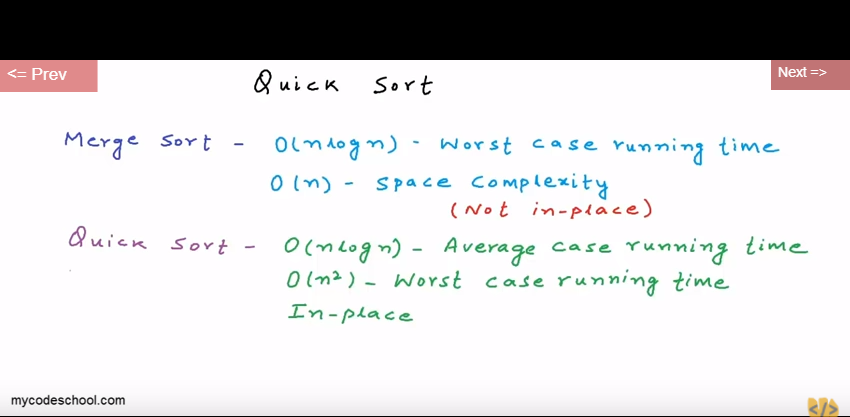 <= Prev
Next =>
Quick Sort
Merge Sort - O(nlogn) - Worst case running time
O(n) - Space Complexity
(Not in-place)
Quick Sort - O(nlogn) - Average case running time
O(n²) - Worst case running time
In-place
mycodeschool.com
</>